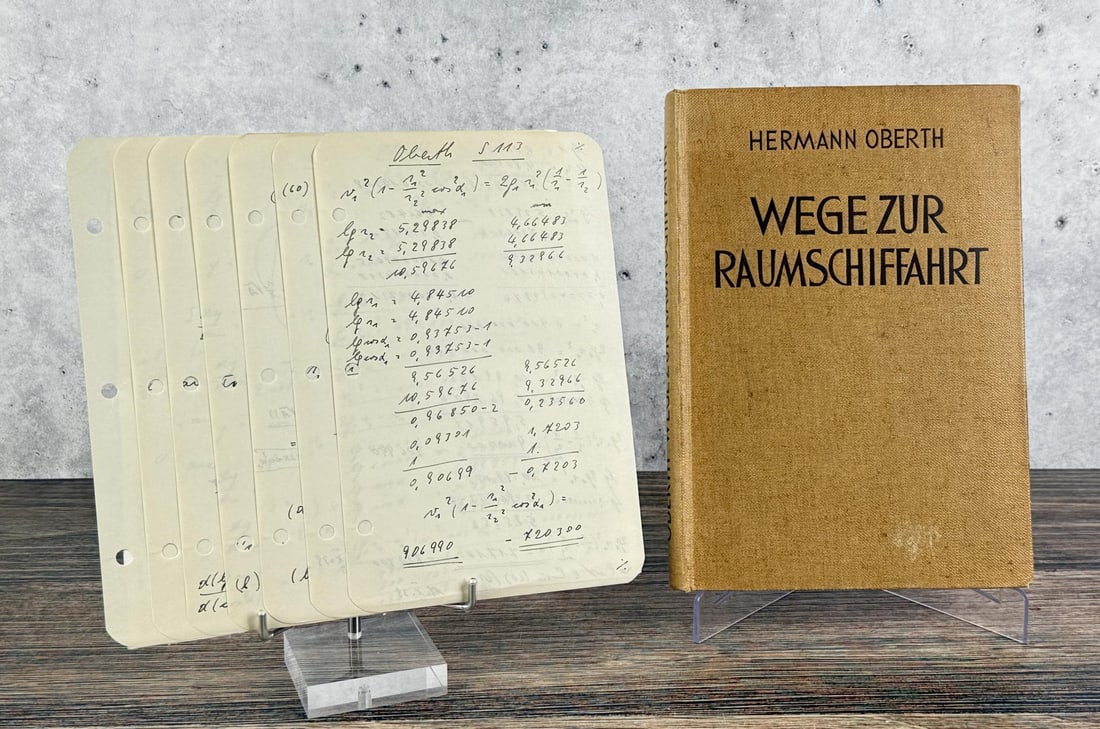 Oberth S 113
v₁²(1 - r₁²/r₂² cos²α₁) = 2g₁ r₁²(1/r₁ - 1/r₂)
max
lg r₂ = 5,29838 4,66483
lg r₂ = 5,29838 4,66483
10,59676 9,32966
lg r₁ = 4,84510
lg r₁ = 4,84510
lg cosα₁ = 0,93753-1
lg cosα₁ = 0,93753-1
9,56526 9,56526
10,59676 9,32966
0,96850-2 0,23560
0,09301 1,7203
1 1.
0,90699 - 0,7203
v₁²(1 - r₁²/r₂² cos²α₁) =
906990 - 720300
%
(60)
HERMANN OBERTH
WEGE ZUR
RAUMSCHIFFAHRT